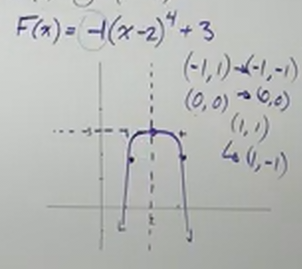 F(x) = -1(x-2)⁴ + 3
(-1, 1) → (-1, -1)
(0, 0) → (0, 0)
(1, 1)
↳ (1, -1)